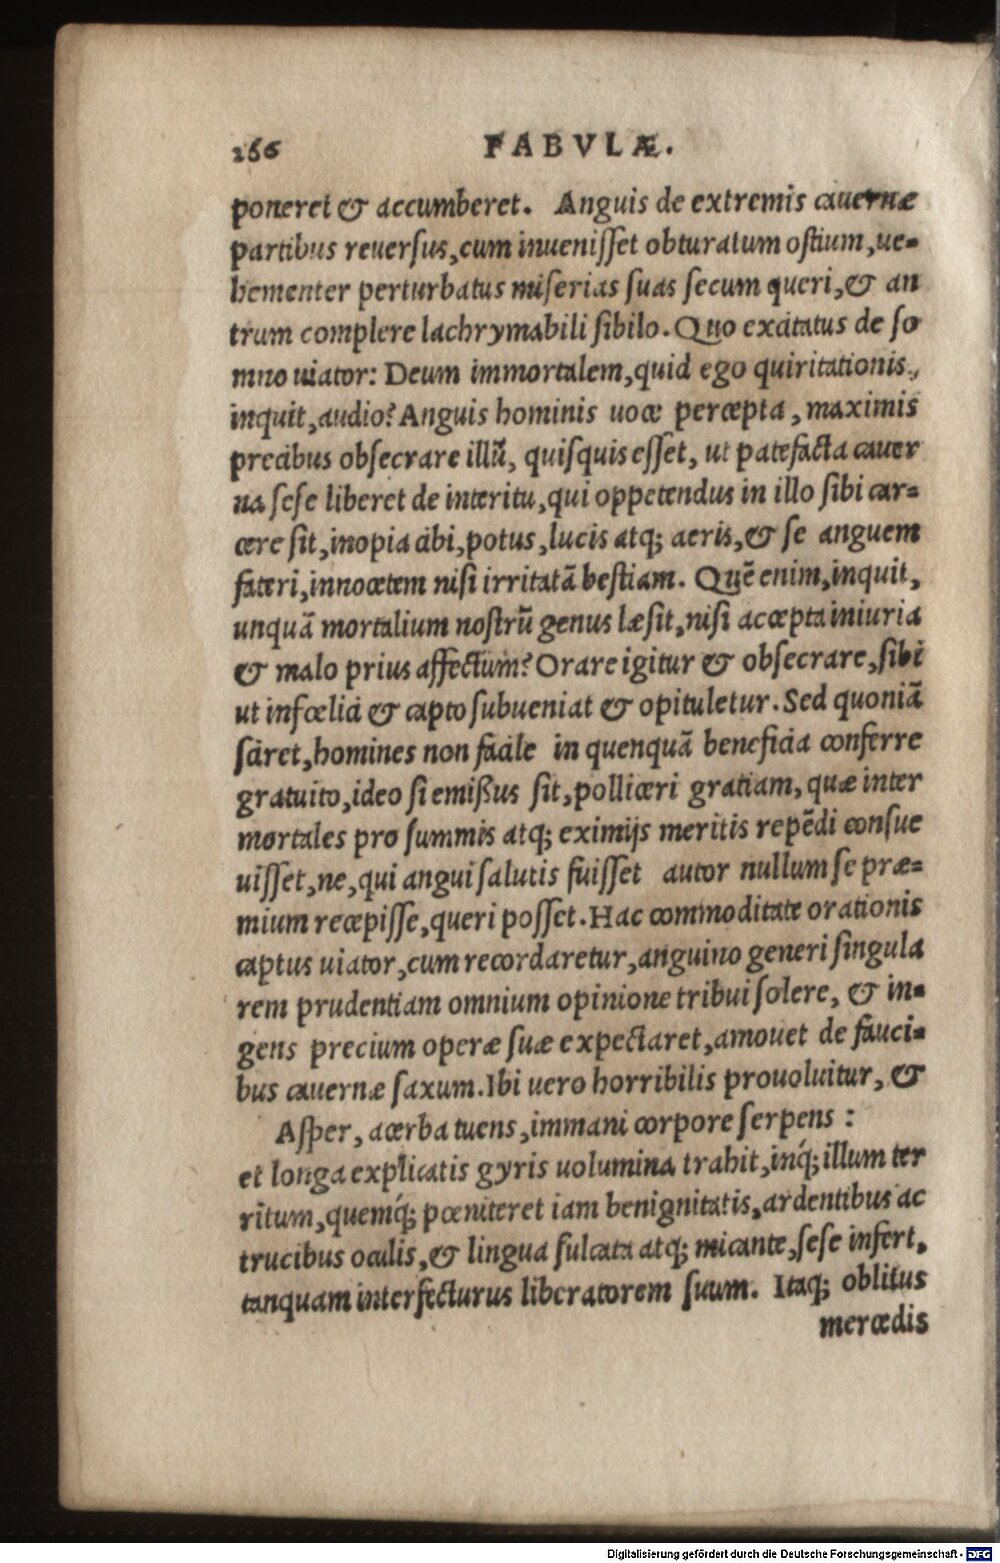 266 FABVLÆ.
poneret & accumberet. Anguis de extremis cauernæ
partibus reuersus, cum inuenisset obturatum ostium, ue-
hementer perturbatus miserias suas secum queri, & an
trum complere lachrymabili sibilo. Quo excitatus de so
mno uiator: Deum immortalem, quid ego quiritationis,
inquit, audio? Anguis hominis uoce percepta, maximis
precibus obsecrare illũ, quisquis esset, ut patefacta cauer
na sese liberet de interitu, qui oppetendus in illo sibi car-
cere sit, inopia cibi, potus, lucis atq; aeris, & se anguem
fateri, innocẽtem nisi irritatã bestiam. Quẽ enim, inquit,
unquã mortalium nostrũ genus læsit, nisi accepta iniuria
& malo prius affectum? Orare igitur & obsecrare, sibi
ut infœlici & capto subueniat & opituletur. Sed quoniã
sciret, homines non facile in quenquã beneficia conferre
gratuito, ideo si emißus sit, polliceri gratiam, quæ inter
mortales pro summis atq; eximijs meritis repẽdi consue
uisset, ne, qui angui salutis fuisset autor nullum se præ-
mium recepisse, queri posset. Hac commoditate orationis
captus uiator, cum recordaretur, anguino generi singula
rem prudentiam omnium opinione tribui solere, & in-
gens precium operæ suæ expectaret, amouet de fauci-
bus cauernæ saxum. Ibi uero horribilis prouoluitur, &
Asper, acerba tuens, immani corpore serpens:
et longa explicatis gyris uolumina trahit, inq́; illum ter
ritum, quemq́; pœniteret iam benignitatis, ardentibus ac
trucibus oculis, & lingua sulcata atq; micante, sese infert,
tanquam interfecturus liberatorem suum. Itaq; oblitus
mercedis
Digitalisierung gefördert durch die Deutsche Forschungsgemeinschaft - DFG